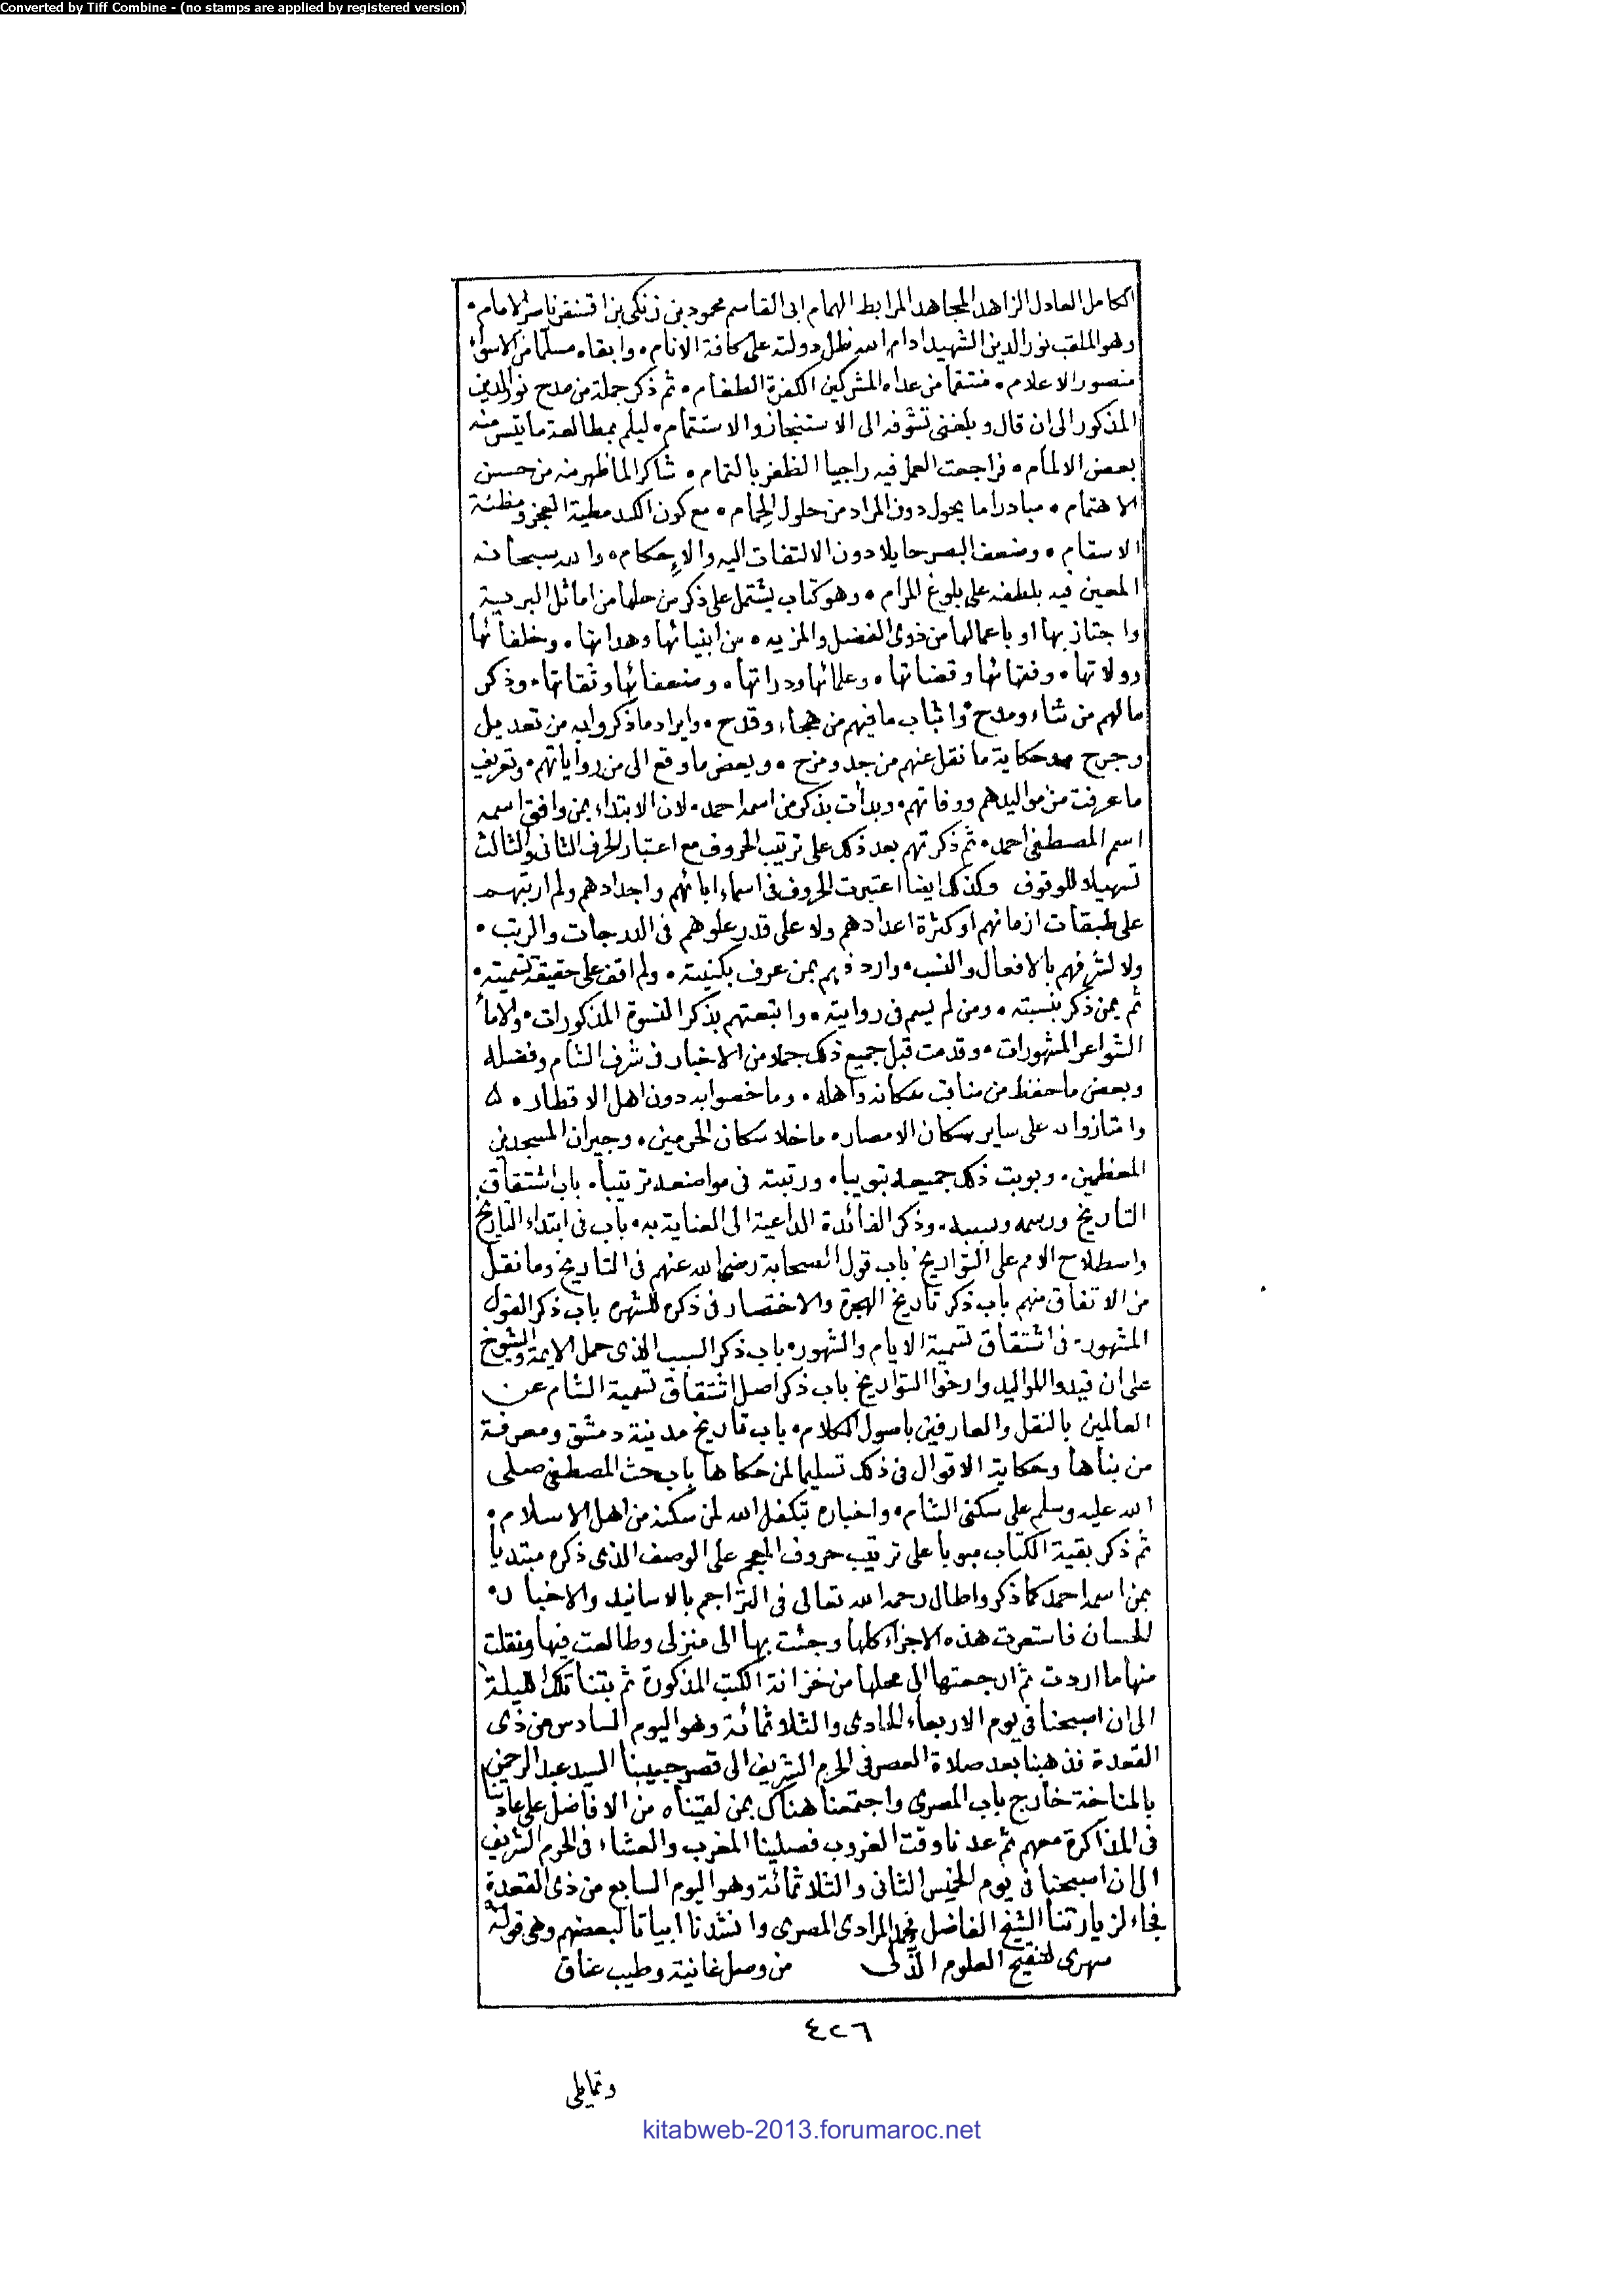 Converted by Tiff Combine - (no stamps are applied by registered version)
الكامل العادل الزاهد المجاهد المرابط الهمام ابى القاسم محمود بن زنكى بن اقسنقر ناصر الامام •
وهو الملقب نور الدين الشهيد ادام الله ظل دولته على كافة الانام • وابقاه مسلما من الاسواء
منصور الاعلام • منتقما من عداه المشركين الكفرة الطغام • ثم ذكر جملة من مدح نور الدين
المذكور الى ان قال وبلغنى تشوفه الى الاستنجاز والاستتمام • ليلم بمطالعة ما تيسر منه
بعض الالمام • فراجعت العمل فيه راجيا الظفر بالتمام • شاكرا لما ظهر منه من حسن
الاهتمام • مبادرا ما يحول دون المراد من حلول الحمام • مع كون الكبد مطية العجز ومظنة
الاسقام • وضعف البصر حايلا دون الالتفات اليه والاحكام • والله سبحانه
المعين فيه بلطفه على بلوغ المرام • وهو كتاب يشتمل على ذكر من حلها من اماثل البرية
واجتاز بها او باعمالها من ذوى الفضل والمزيه • من انبيائها وهداتها • وخلفائها
وولاتها • وفقهائها وقضاتها • وعلمائها ودراتها • وضعفائها وثقاتها • وذكر
مالهم من ثناء ومدح • واثبات ما فيهم من هجاء وقدح • وايراد ما ذكروا به من تعديل
وجرح • وحكاية ما نقل عنهم من جد ومزح • وبعض ما وقع الى من رواياتهم • وتعريف
ما عرفت من مواليدهم ووفاتهم • وبدأت بذكر من اسمه احمد • لان الابتداء بمن وافق اسمه
اسم المصطفى احمد • ثم ذكرتهم بعد ذلك على ترتيب الحروف مع اعتبار الحرف الثانى والثالث
تسهيلا للوقوف وكذلك ايضا اعتبرت الحروف فى اسماء ابائهم واجدادهم ولم ارتبهم
على طبقات ازمانهم او كثرة اعدادهم ولا على قدر علوهم فى الدرجات والرتب •
ولا لشرفهم بالافعال والنسب • واردفهم بمن عرف بكنيته • ولم اقف على حقيقة تسميته •
ثم بمن ذكر بنسبته • ومن لم يسم فى روايته • واتبعتهم بذكر النسوة المذكورات • والاماء
الشواعر المشهورات • وقدمت قبل جميع ذلك جملة من الاخبار فى شرف الشام وفضله
وبعض ما حفظ من مناقب سكانه واهله • وما خصوا به دون اهل الاقطار •
وامتازوا به على ساير سكان الامصار • ما خلا سكان الحرمين • وجيران المسجدين
المعظمين • وبوبت ذلك جميعه تبويبا • ورتبته فى مواضعه ترتيبا • باب اشتقاق
التاريخ ورسمه وسببه • وذكر الفائدة الداعية الى العناية به • باب فى ابتداء التاريخ
واصطلاح الامم على التواريخ باب قول الصحابة رضى الله عنهم فى التاريخ وما نقل
من الاتفاق منهم باب ذكر تاريخ الهجرة والاختصار فى ذكره للشهره باب ذكر القول
المشهور • فى اشتقاق تسمية الايام والشهور • باب ذكر السبب الذى حمل الايمة والشيوخ
على ان قيدوا المواليد وارخوا التواريخ باب ذكر اصل اشتقاق تسمية الشام عن
العالمين بالنقل والعارفين باصول الكلام • باب تاريخ مدينة دمشق ومعرفة
من بناها وحكاية الاقوال فى ذلك تسليما لمن حكاها باب حث المصطفى صلى
الله عليه وسلم على سكنى الشام • واخباره بتكفل الله لمن سكنه من اهل الاسلام •
ثم ذكر بقية الكتاب مبوبا على ترتيب حروف المعجم على الوصف الذى ذكره مبتديا
بمن اسمه احمد كما ذكر واطال رحمه الله تعالى فى التراجم بالاسانيد والاخبار •
الحسان فاستعرت هذه الاجزاء كلها وجئت بها الى منزلى وطالعت فيها ونقلت
منها ما اردت ثم ارجعتها الى محلها من خزانة الكتب المذكورة ثم بتنا تلك الليلة
الى ان اصبحنا فى يوم الاربعاء الحادى والثلاثمائة وهو اليوم السادس من ذى
القعدة فذهبنا بعد صلاة العصر فى الحرم الشريف الى قصر حبيبنا السيد عبد الرحمن
بالمناخة خارج باب المصرى واجتمعنا هناك بمن لقيناه من الافاضل على عادتنا
فى المذاكرة معهم ثم عدنا وقت الغروب فصلينا المغرب والعشاء فى الحرم الشريف
الى ان اصبحنا فى يوم الخميس الثانى والثلاثمائة وهو اليوم السابع من ذى القعدة
فجاء لزيارتنا الشيخ الفاضل محمد المرادى المصرى وانشدنا ابياتا لبعضهم وهى قوله
سهرى لتنقيح العلوم الذ لى من وصل غانية وطيب عناق
٤٢٦
وتمايلى
kitabweb-2013.forumaroc.net